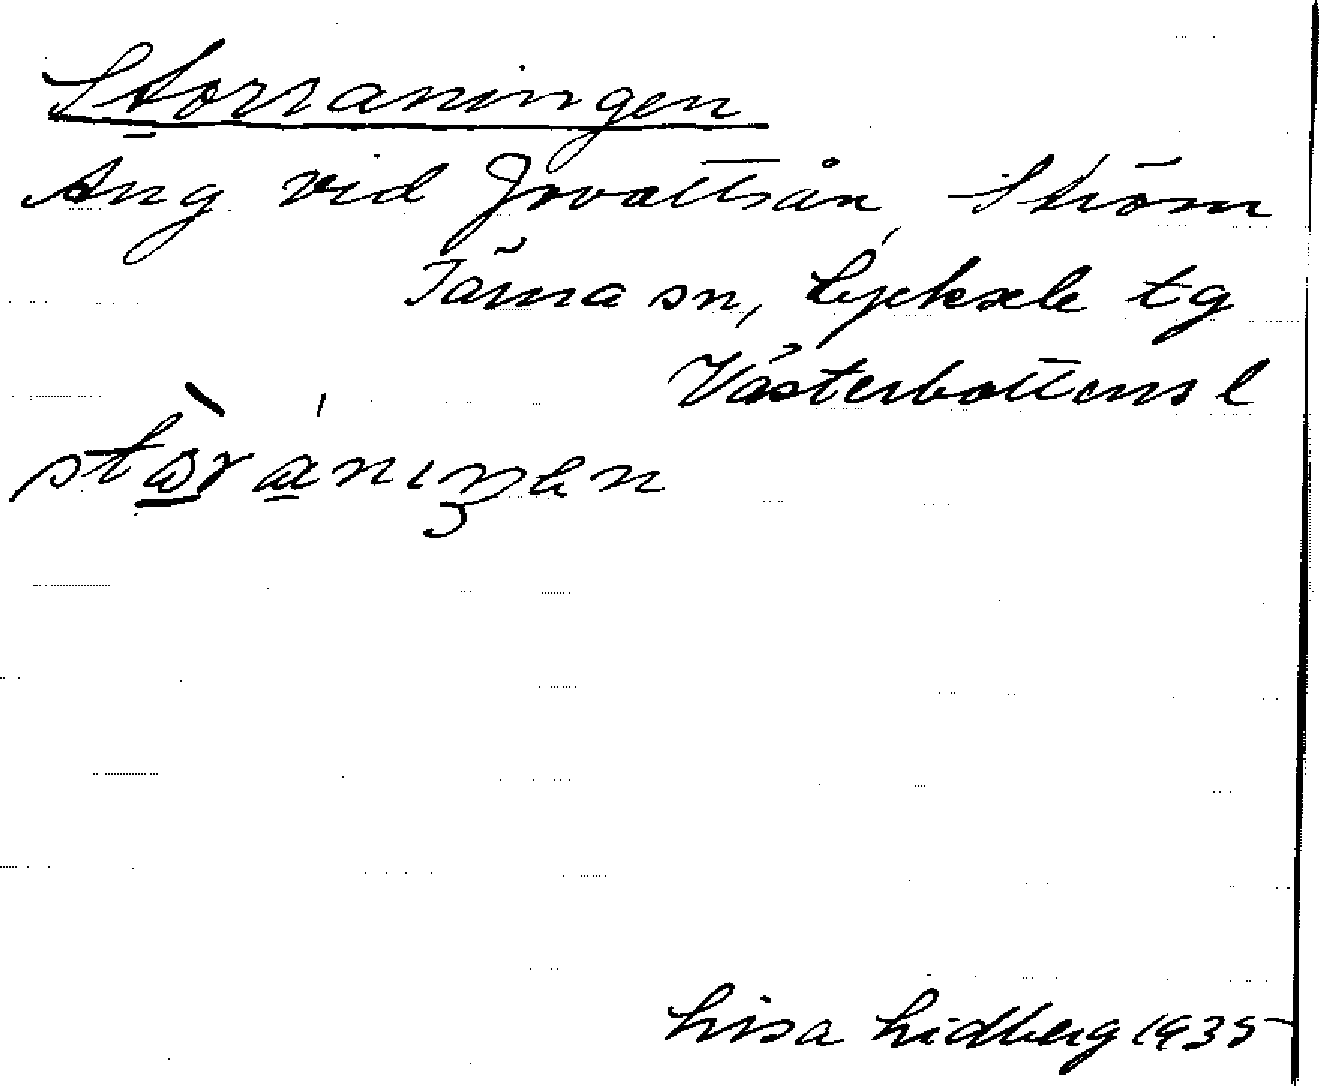 Storraningen
Äng vid Jovattsån, Ström
Tärna sn, Lycksele tg
Västerbottens l
Lisa Lidberg 1935